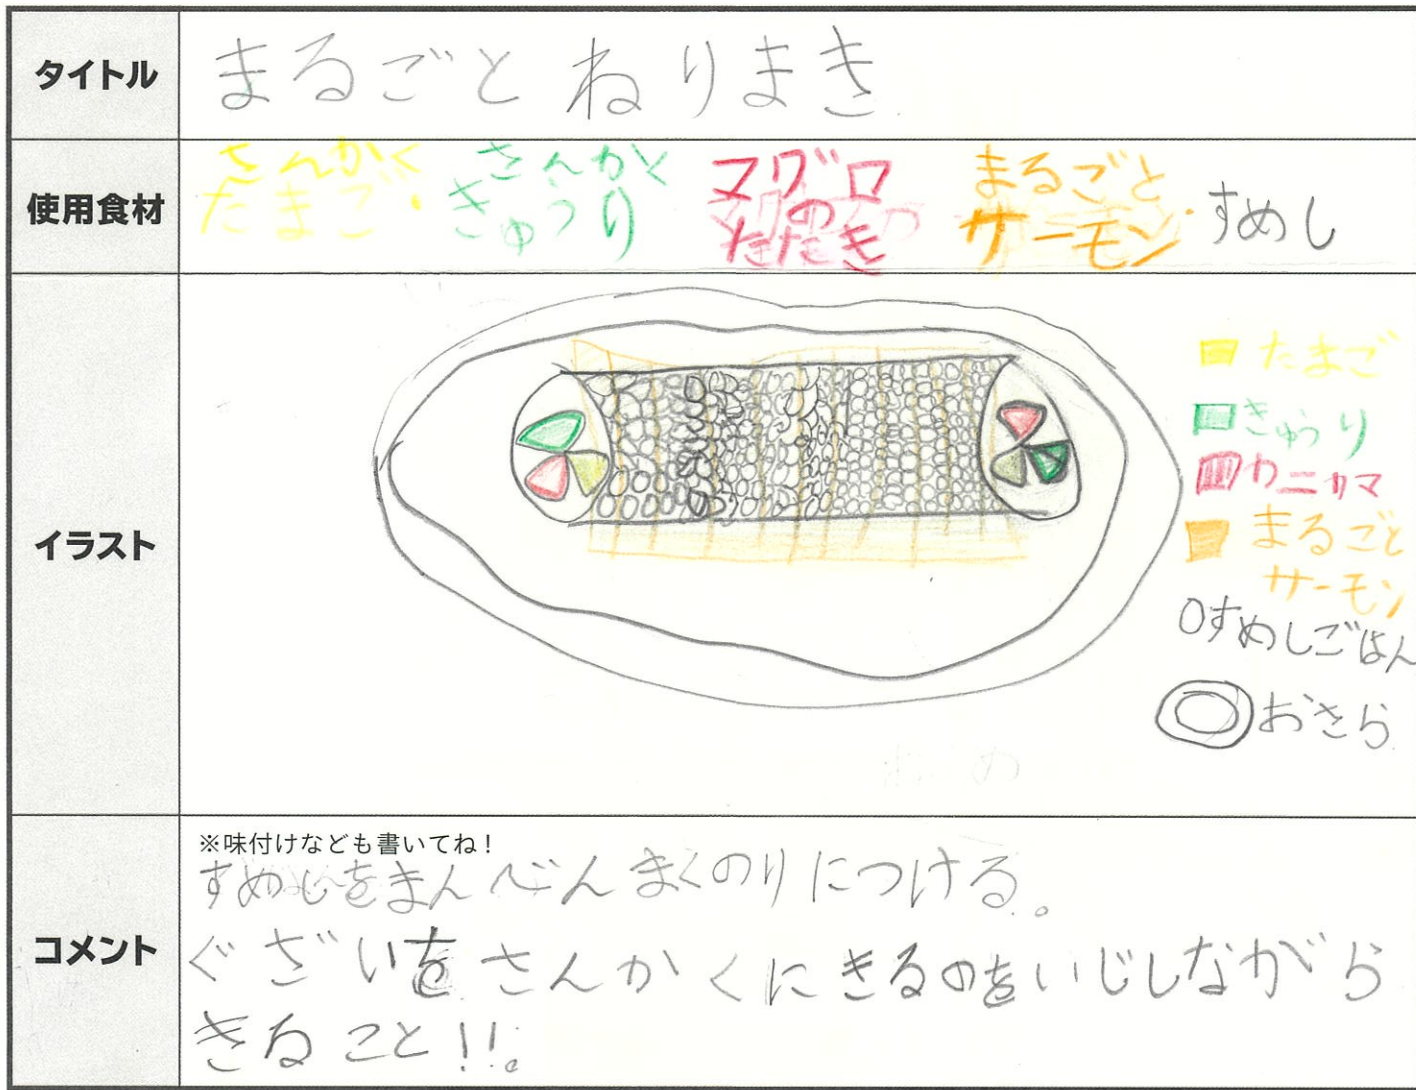 タイトル
まるごと ねりまき
使用食材
さんかく
たまご・
さんかく
きゅうり
マグロ
の
たたき
まるごと
サーモン
すめし
イラスト
たまご
きゅうり
カニカマ
まるごと
サーモン
すめしごはん
おさら
コメント
※味付けなども書いてね！
すめしをまんべんまくのりにつける。
ぐざいをさんかくにきるのをいじしながら
きること!!。